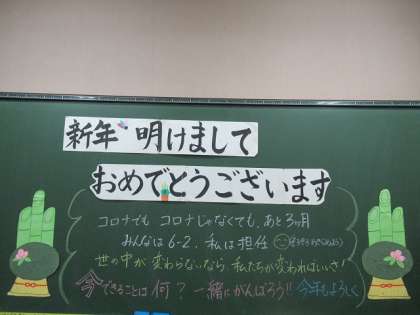 新年 明けまして
おめでとうございます
コロナでも コロナじゃなくても、あと3ヶ月
みんなは6-2、私は担任
世の中が変わらないなら、私たちが変わればいいさ!
今できることは何? 一緒にがんばろう!! 今年もよろしく